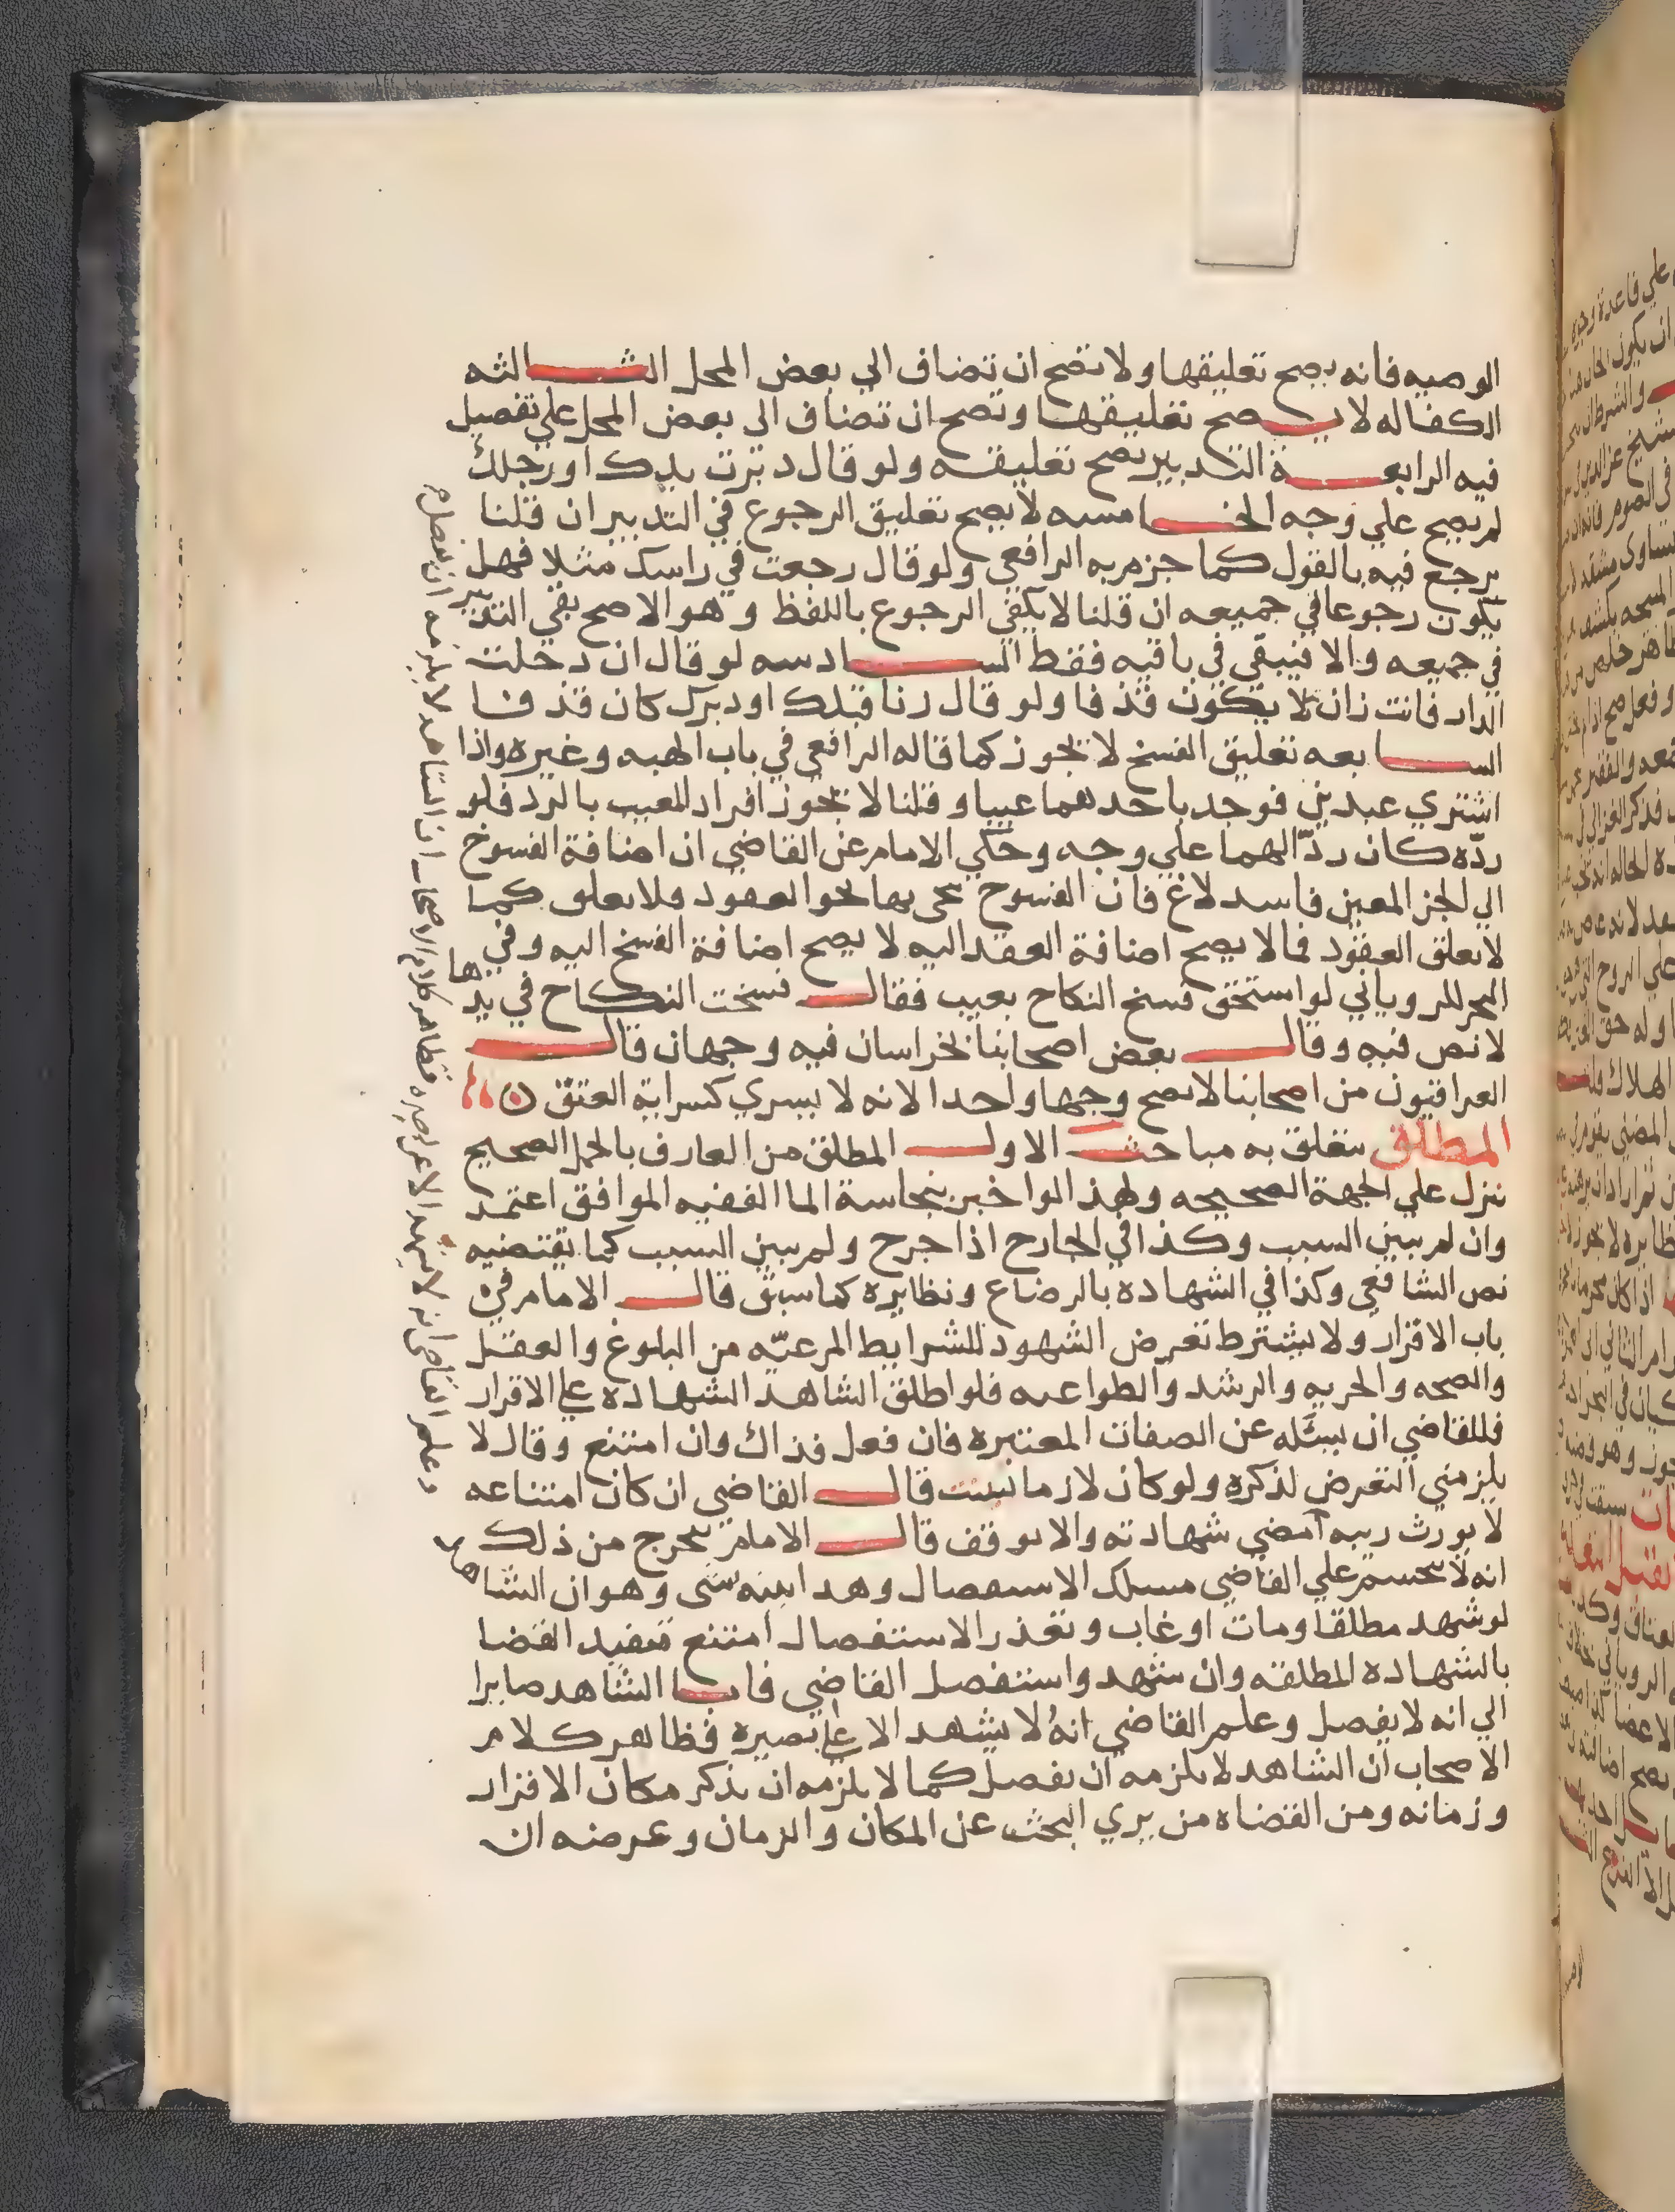 الوصيه فانه يصح تعليقها ولا تصح ان تضاف الي بعض المحل الثالثه
الكفاله لا يصح تعليقها وتصح ان تضاف الى بعض المحل علي تفصيل
فيه الرابعة التدبير يصح تعليقه ولو قال دبرت يدك او رجلك
لم يصح علي وجه الخامسه لا يصح تعليق الرجوع في التدبير ان قلنا
يرجع فيه بالقول كما جزم به الرافعي ولو قال رجعت في راسك مثلا فهل
يكون رجوعا في جميعه ان قلنا لا يكفي الرجوع باللفظ وهو الاصح بقي التدبير
في جميعه والا فيبقي في باقيه فقط السادسه لو قال ان دخلت
الدار فانت زان لا يكون قذفا ولو قال زنا قبلك او دبرك كان قذفا
السابعه تعليق الفسخ لا يجوز كما قاله الرافعي في باب الهبه وغيره واذا
اشتري عبدين فوجد باحدهما عيبا وقلنا لا يجوز افراد المعيب بالرد فلو
ردّه كان ردّا لهما علي وجه وحكي الامام عن القاضي ان اضافة الفسوخ
الي الجز المعين فاسد لاغ فان الفسوخ نحى بها نحو العقود ولا تعلق كما
لا تعلق العقود فما لا يصح اضافة العقد اليه لا يصح اضافة الفسخ اليه وفي
البحر للروياني لو استحق فسخ النكاح بعيب فقال فسخت النكاح في يدها
لا نص فيه وقال بعض اصحابنا بخراسان فيه وجهان قال
العراقيون من اصحابنا لا يصح وجها واحدا لانه لا يسري كسراية العتق
المطلق يتعلق به مباحث الاول المطلق من العارف بالحمل الصحيح
ينزل علي الجهة الصحيحه ولهذا لو اخبر بنجاسة الما الفقيه الموافق اعتمد
وان لم يبين السبب وكذا في الجارح اذا جرح ولم يبين السبب كما يقتضيه
نص الشافعي وكذا في الشهاده بالرضاع ونظايره كما سبق قال الامام في
باب الاقرار ولا يشترط تعرض الشهود للشرايط المرعيّه من البلوغ والعقل
والصحه والحريه والرشد والطواعيه فلو اطلق الشاهد الشهاده علي الاقرار
فللقاضي ان يسئله عن الصفات المعتبره فان فعل فذاك وان امتنع وقال لا
يلزمني التعرض لذكره ولو كان لازما لبينت قال القاضي ان كان امتناعه
لا يورث ريبه امضي شهادته والا توقف قال الامام يخرج من ذلك
انه لا ينحسم علي القاضي مسلك الاستفصال وهذا ابينه بشى وهو ان الشاهد
لو شهد مطلقا ومات او غاب وتعذر الاستفصال امتنع تنفيذ القضا
بالشهاده المطلقه وان شهد واستفصل القاضي فابا الشاهد صابرا
الي انه لا يفصل وعلم القاضي انه لا يشهد الا علي بصيره فظاهر كلام
الاصحاب ان الشاهد لا يلزمه ان يفصل كما لا يلزمه ان يذكر مكان الاقرار
وزمانه ومن القضاه من يري البحث عن المكان والزمان وغرضه ان
وعلم القاضي انه لا يشهد الا على بصيره فظاهر كلام الاصحاب ان الشاهد لا يلزمه ان يفصل